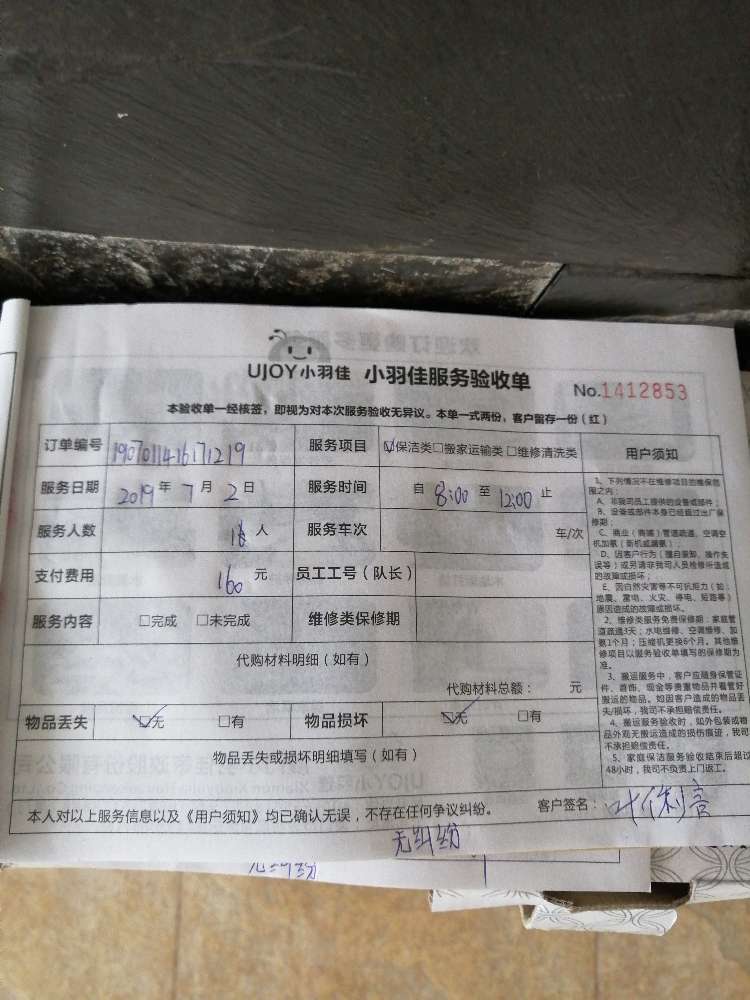 UJOY小羽佳 小羽佳服务验收单 No.1412853
本验收单一经核签，即视为对本次服务验收无异议。本单一式两份，客户留存一份（红）
订单编号 1907011416171219 服务项目 ☑保洁类□搬家运输类□维修清洗类 用户须知
服务日期 2019年7月2日 服务时间 自8:00至12:00止
服务人数 人 服务车次 车/次
支付费用 160元 员工工号（队长）
服务内容 □完成 □未完成 维修类保修期
代购材料明细（如有）
代购材料总额： 元
物品丢失 ☑无 □有 物品损坏 ☑无 □有
物品丢失或损坏明细填写（如有）
本人对以上服务信息以及《用户须知》均已确认无误，不存在任何争议纠纷。 客户签名：
无纠纷
无纠纷
1、下列情况不在维修项目的维保范
围之内：
A、非我司员工提供的设备或部件；
B、设备或部件本身已经超过出厂保
修期；
C、商业（商铺）管道疏通，空调空
机加氨（新机或漏氨）
D、因客户行为（擅自装卸、操作失
误等）或另请非我司人员检修所造成
的故障或损坏；
E、因自然灾害等不可抗拒力（如：
地震、雷电、火灾、停电、短路等）
原因造成的故障或损坏。
2、维修类服务免费保修期：家庭管
道疏通3天；水电维修、空调维修、加
氨1个月；压缩机更换6个月。其他维
修项目以服务验收单填写的保修期为
准。
3、搬运服务中，客户应随身保管证
件、首饰、现金等贵重物品并看管好
搬运的物品。如因客户造成的物品丢
失/损坏，我司不承担赔偿责任。
4、搬运服务验收时，如外包装或物
品外观无搬运造成的损伤痕迹，我司
不承担赔偿责任。
5、家庭保洁服务验收结束后超过
48小时，我司不负责上门返工。